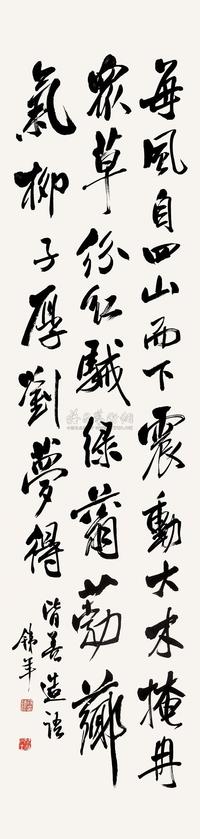 每風自四山而下震動大木掩冉
眾草紛紅駭綠蓊葧薌
氣柳子厚劉夢得
皆善造語
錦年